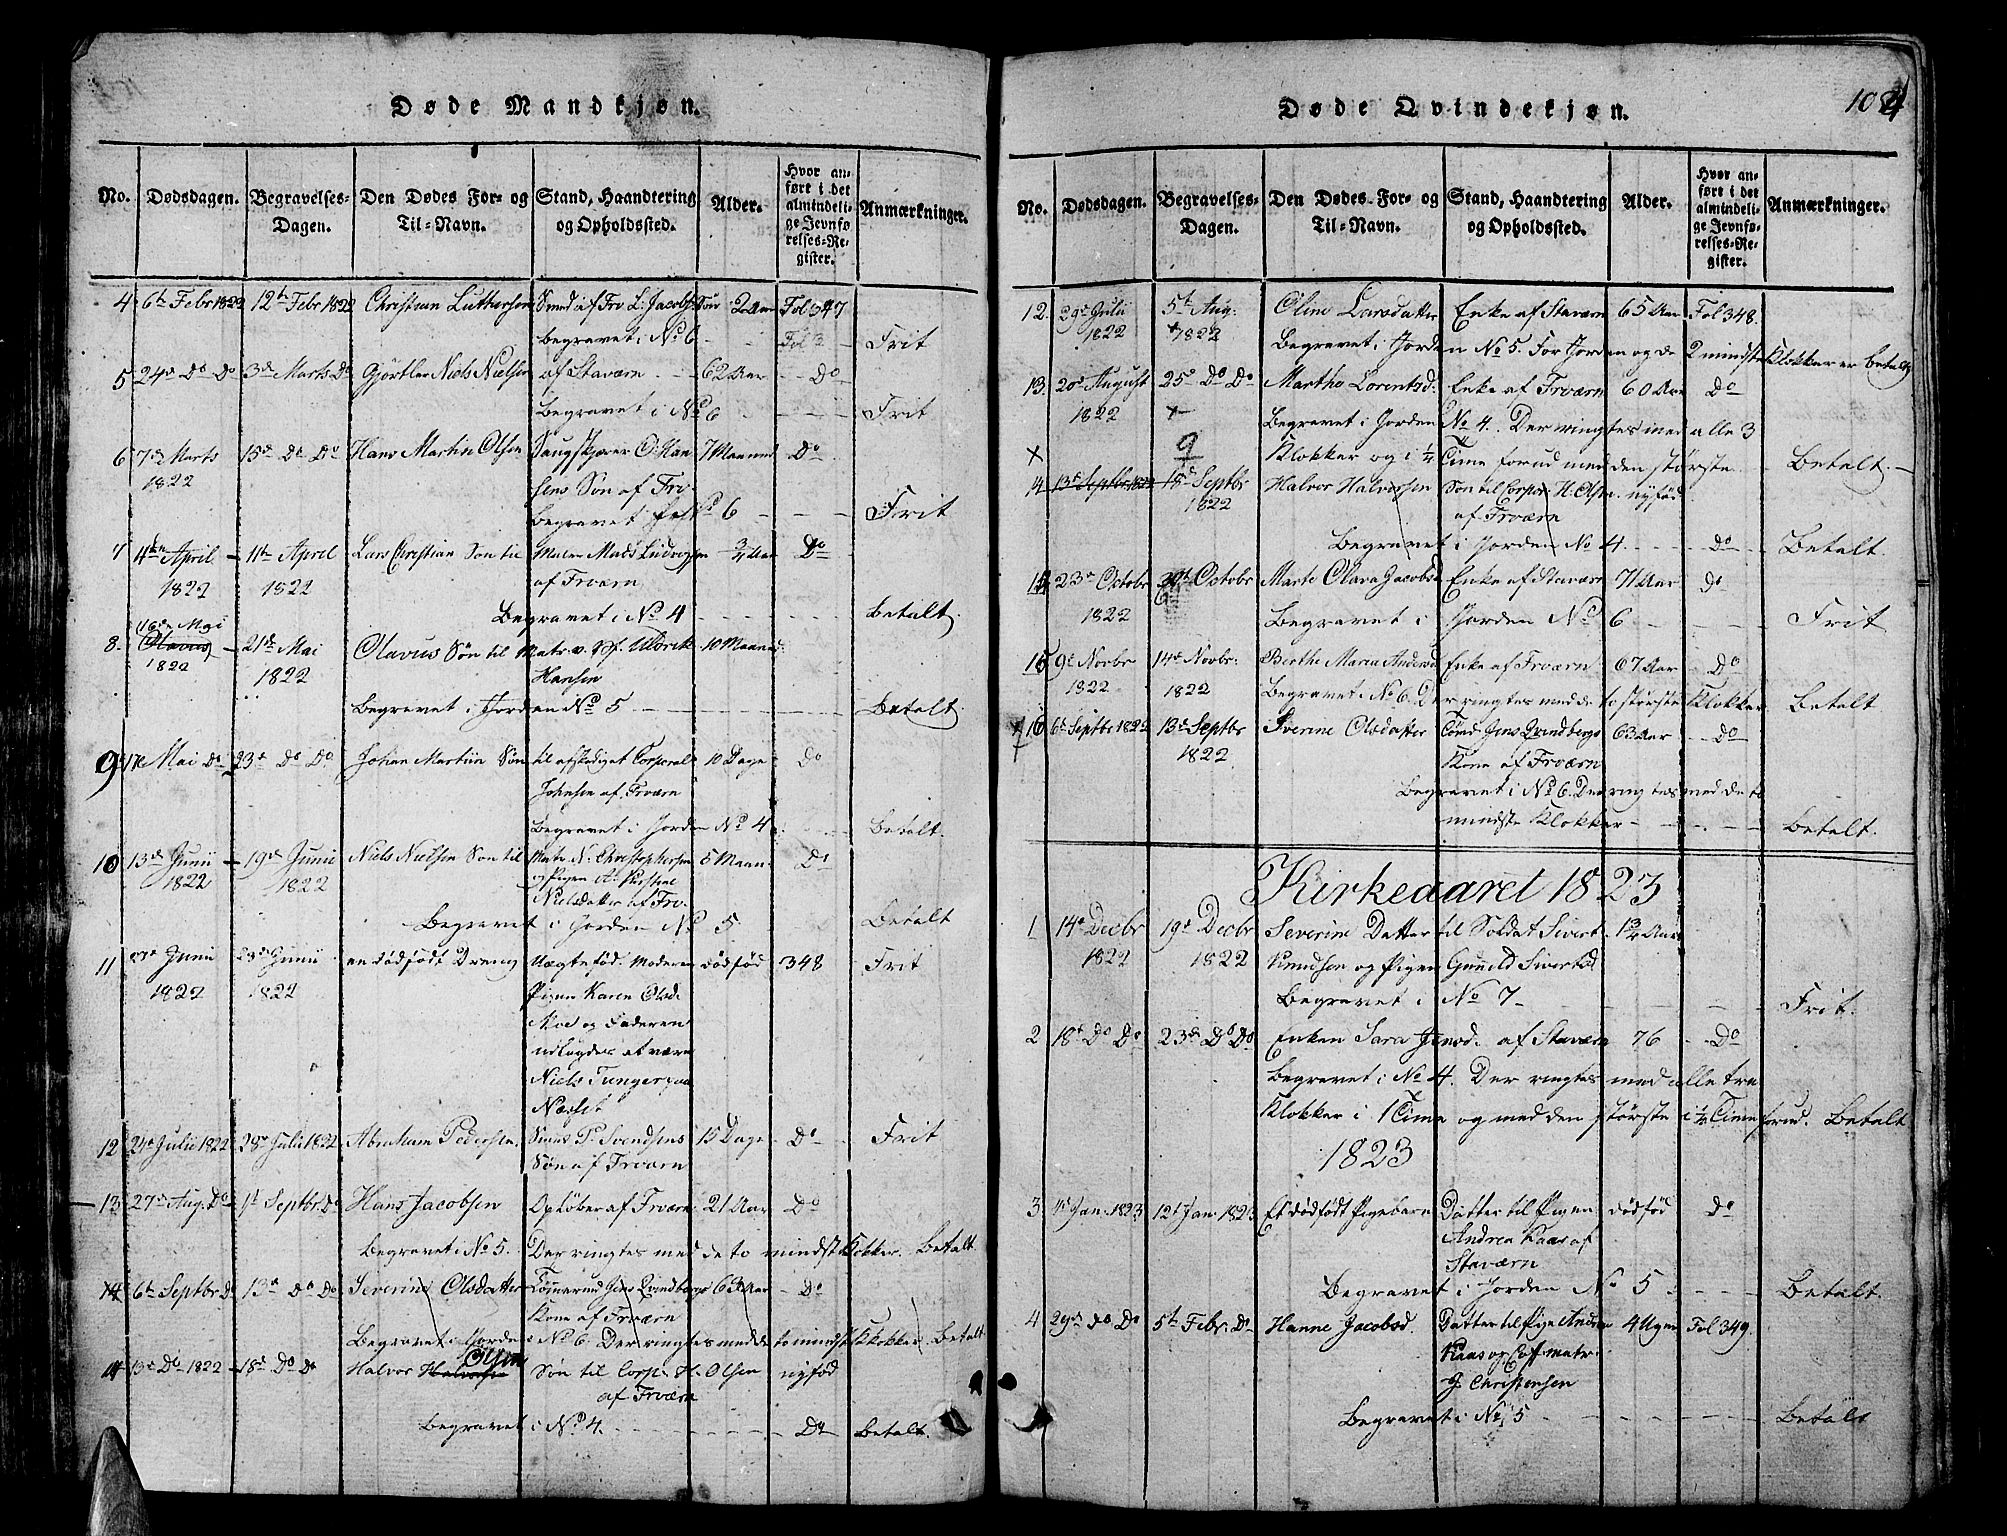 Døde Mandkjøn.
No. Dødsdagen. Begravelses-Dagen. Den Dødes For- og Til-Navn. Stand, Haandtering og Opholdssted. Alder. Hvor anført i det almindelige Jevnførelses-Register. Anmærkninger.
4 6te Febr 1822 12te Febr 1822 Christian Luttersen Smed af Frv L. Jacobs Søn 2 Aar Fol 347
Begravet i No 6 - - Fol 3 - Frit
5 24de Do Do 3de Marts Do Gjørtler Niels Nielsen af Staværn - - 62 Aar - - Do
Begravet i No 6 - - - Frit
6 7de Marts 15de Do Do Hans Martin Olsen O. Han 7 Maaned Do
1822 sens Søn af Frv.
Begravet No 6 - - - Frit
7 4de April - 11te April Lars Christian Søn til Mads Ludvigsen 3/4 Aar Do
1822 1822 af Frværn
Begravet i No 4 - - - Betalt.
16de Mai
8. Olavus - 21de Mai Olavus Søn til Matr. v. Ulbrik 10 Maaned
1822 1822 Hansen
Begravet i Jorden No 5 - - - Betalt.
9 17de Mai Do 23de Do Do Johan Martiin Søn til afskediget Corporal 10 Dage Do
Johnsen af Frværn
Begravet i Jorden No 4 Betalt.
10 13de Junii - 19de Junii Niels Nielsen Søn til Matr. N. Christophersen 5 Maan: Do
1822 1822 og Pigen A. Kirstine
Nielsdatter af Frv.
Begravet i Jorden No 5 Betalt
11 Junii 28de Junii en dødfødt Dreng Uægte fød. Moderen dødfød 348 - Frit
1822 1822 Pigen Karen Olsd.
Moe og Faderen
udlagdes at være
Niels
12 24de Julii 1822 28de Juli 1822 Abraham Pedersen, P. Svendsens 15 Dage - Do - Frit
Søn af Frværn
13 27de Aug. Do 1st Septbr. Do Hans Jacobsen Opløber af Frværn 21 Aar Do
Begravet i No 5. Der ringtes med de to mindst Klokker. Betalt
14 6te Septbr Do 13de Do Do Severine Olsdatter Tømmermd Jens Qvindbergs 63 Aar - Do
Kone af Frværn
Begravet i Jorden i No 6. Der ringtes med de to mindst Klokker. Betalt
14 13de Do 1822 - 18de Do Do Halvor Halvorsen Olsen Søn til Corp. H. Olsen nyfød
af Frværn
Begravet i No 4. - - - Do Betalt.
Døde Qvindekjøn.
104
No. Dødsdagen. Begravelses-Dagen. Den Dødes For- og Til-Navn. Stand, Haandtering og Opholdssted. Alder. Hvor anført i det almindelige Jevnførelses-Register. Anmærkninger.
12. 29de Julii 5te Aug: Oline Larsdatter Enke af Staværn 65 Aar Fol 348.
1822 + 1822 Begravet i Jorden No 5. For Jorden og de 2 mindste Klokker er betalt
13. 20de August 25de Do Do Marthe Lorentzd: Enke af Frværn 60 Aar Do
1822 + Begravet i Jorden No 4. Der ringtes med alle 3
x 9 Klokker og i 1/4 Time forud med den største - Betalt. -
14 13de Septbr 1822 18de Septbr Halvor Halvorsen Søn til Corpor. H. Olsen nyfød
1822 af Frværn
Begravet i Jorden No 4. - - - Do - Betalt.
15 23de Octobr 30te Octobr Marte Olava Jacobsd Enke af Staværn 71 Aar Do
1822 Begravet i Jorden No 6 - - - Frit
16 9de Novbr 14de Novbr: Berthe Maria Andersd Enke af Frværn 67 Aar Do
1822 1822 Begravet i No 6. Der ringtes med de to største Klokker Betalt
16 6te Septbr 1822 13de Septbr Sverine Olsdatter Tømd Jens Qvindbergs 63 Aar - - Do
1822 Kone af Frværn
Begravet i No 6. Der ringtes med de to
mindste Klokker - - - Betalt.
Kirkeaaret 1823
1 14de Decbr 19de Decbr Severine Datter til Soldat Sivert 1 3/4 Aar
1822 1822 Knudsen og Pigen Gunild Sivertsd
Begravet i No 7 - - - Frit.
2 18de Do Do 23de Do Do Enken Sara Jensd. af Staværn 76 - Do
Begravet i No 4. Der ringtes med alle tre
Klokker i 1 Time og med den største i 1/4 Time forud. Betalt
1823
3 Jan. 1823 12te Jan. 1823 Et dødfødt Pigebarn Datter til Pigen dødfød Do
Andrea Kaas af
Staværn
Begravet i Jorden No 5 - - - Betalt.
4 29de Do Do 5te Febr. Do Hanne Jacobsd. Datter til Pige Andrea 4 Uger Fol 349.
Kaas og af matr.
J. Christensen
Begravet i No 5 - - - Betalt